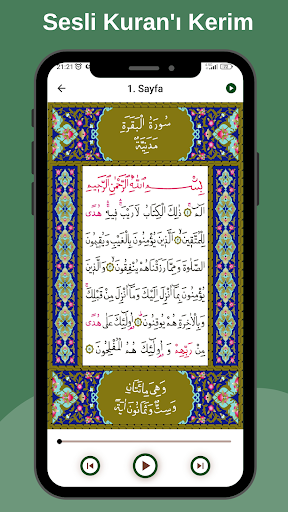 Sesli Kuran'ı Kerim
21:21
1. Sayfa
سُورَةُ الْبَقَرَةِ
مَدَنِيَّةٌ
بِسْمِ اللّٰهِ الرَّحْمٰنِ الرَّحٖيمِ
الٓمٓ ۞ ذٰلِكَ الْكِتَابُ لَا رَيْبَ فٖيهِ هُدًى
لِلْمُتَّقٖينَ ۞ اَلَّذٖينَ يُؤْمِنُونَ بِالْغَيْبِ وَيُقٖيمُونَ
الصَّلٰوةَ وَمِمَّا رَزَقْنَاهُمْ يُنْفِقُونَ ۞ وَالَّذٖينَ
يُؤْمِنُونَ بِمَٓا اُنْزِلَ اِلَيْكَ وَمَٓا اُنْزِلَ مِنْ قَبْلِكَ
وَبِالْاٰخِرَةِ هُمْ يُوقِنُونَ ۞ اُو۬لٰٓئِكَ عَلٰى هُدًى
مِنْ رَبِّهِمْ وَاُو۬لٰٓئِكَ هُمُ الْمُفْلِحُونَ ۞
وَهِيَ مِائَتَانِ
وَسِتٌّ وَثَمَانُونَ اٰيَةً